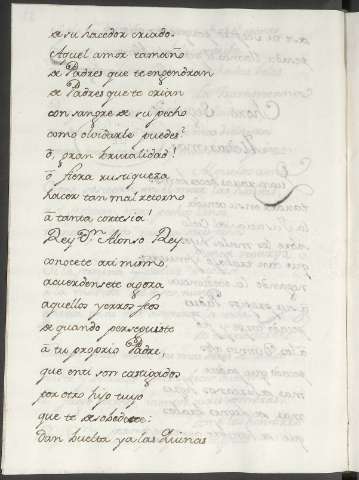 de su hacedor criado.
Aquel amor tamaño
de Padres que te engendran
de Padres que te crian
con sangre de su pecho
como olvidarle puedes?
ô, gran brutalidad!
ô fiera rustiqueza
hacer tan mal retorno
â tanta cortesia!
Rey D.ⁿ Alonso Rey
conocete a ti mismo
acuerdensete agora
aquellos yerros feos
de quando perseguiste
â tu proprio Padre,
que en ti son castigados
por otro hijo tuyo
que te desobedece:
Dan buelta ya las Quinas